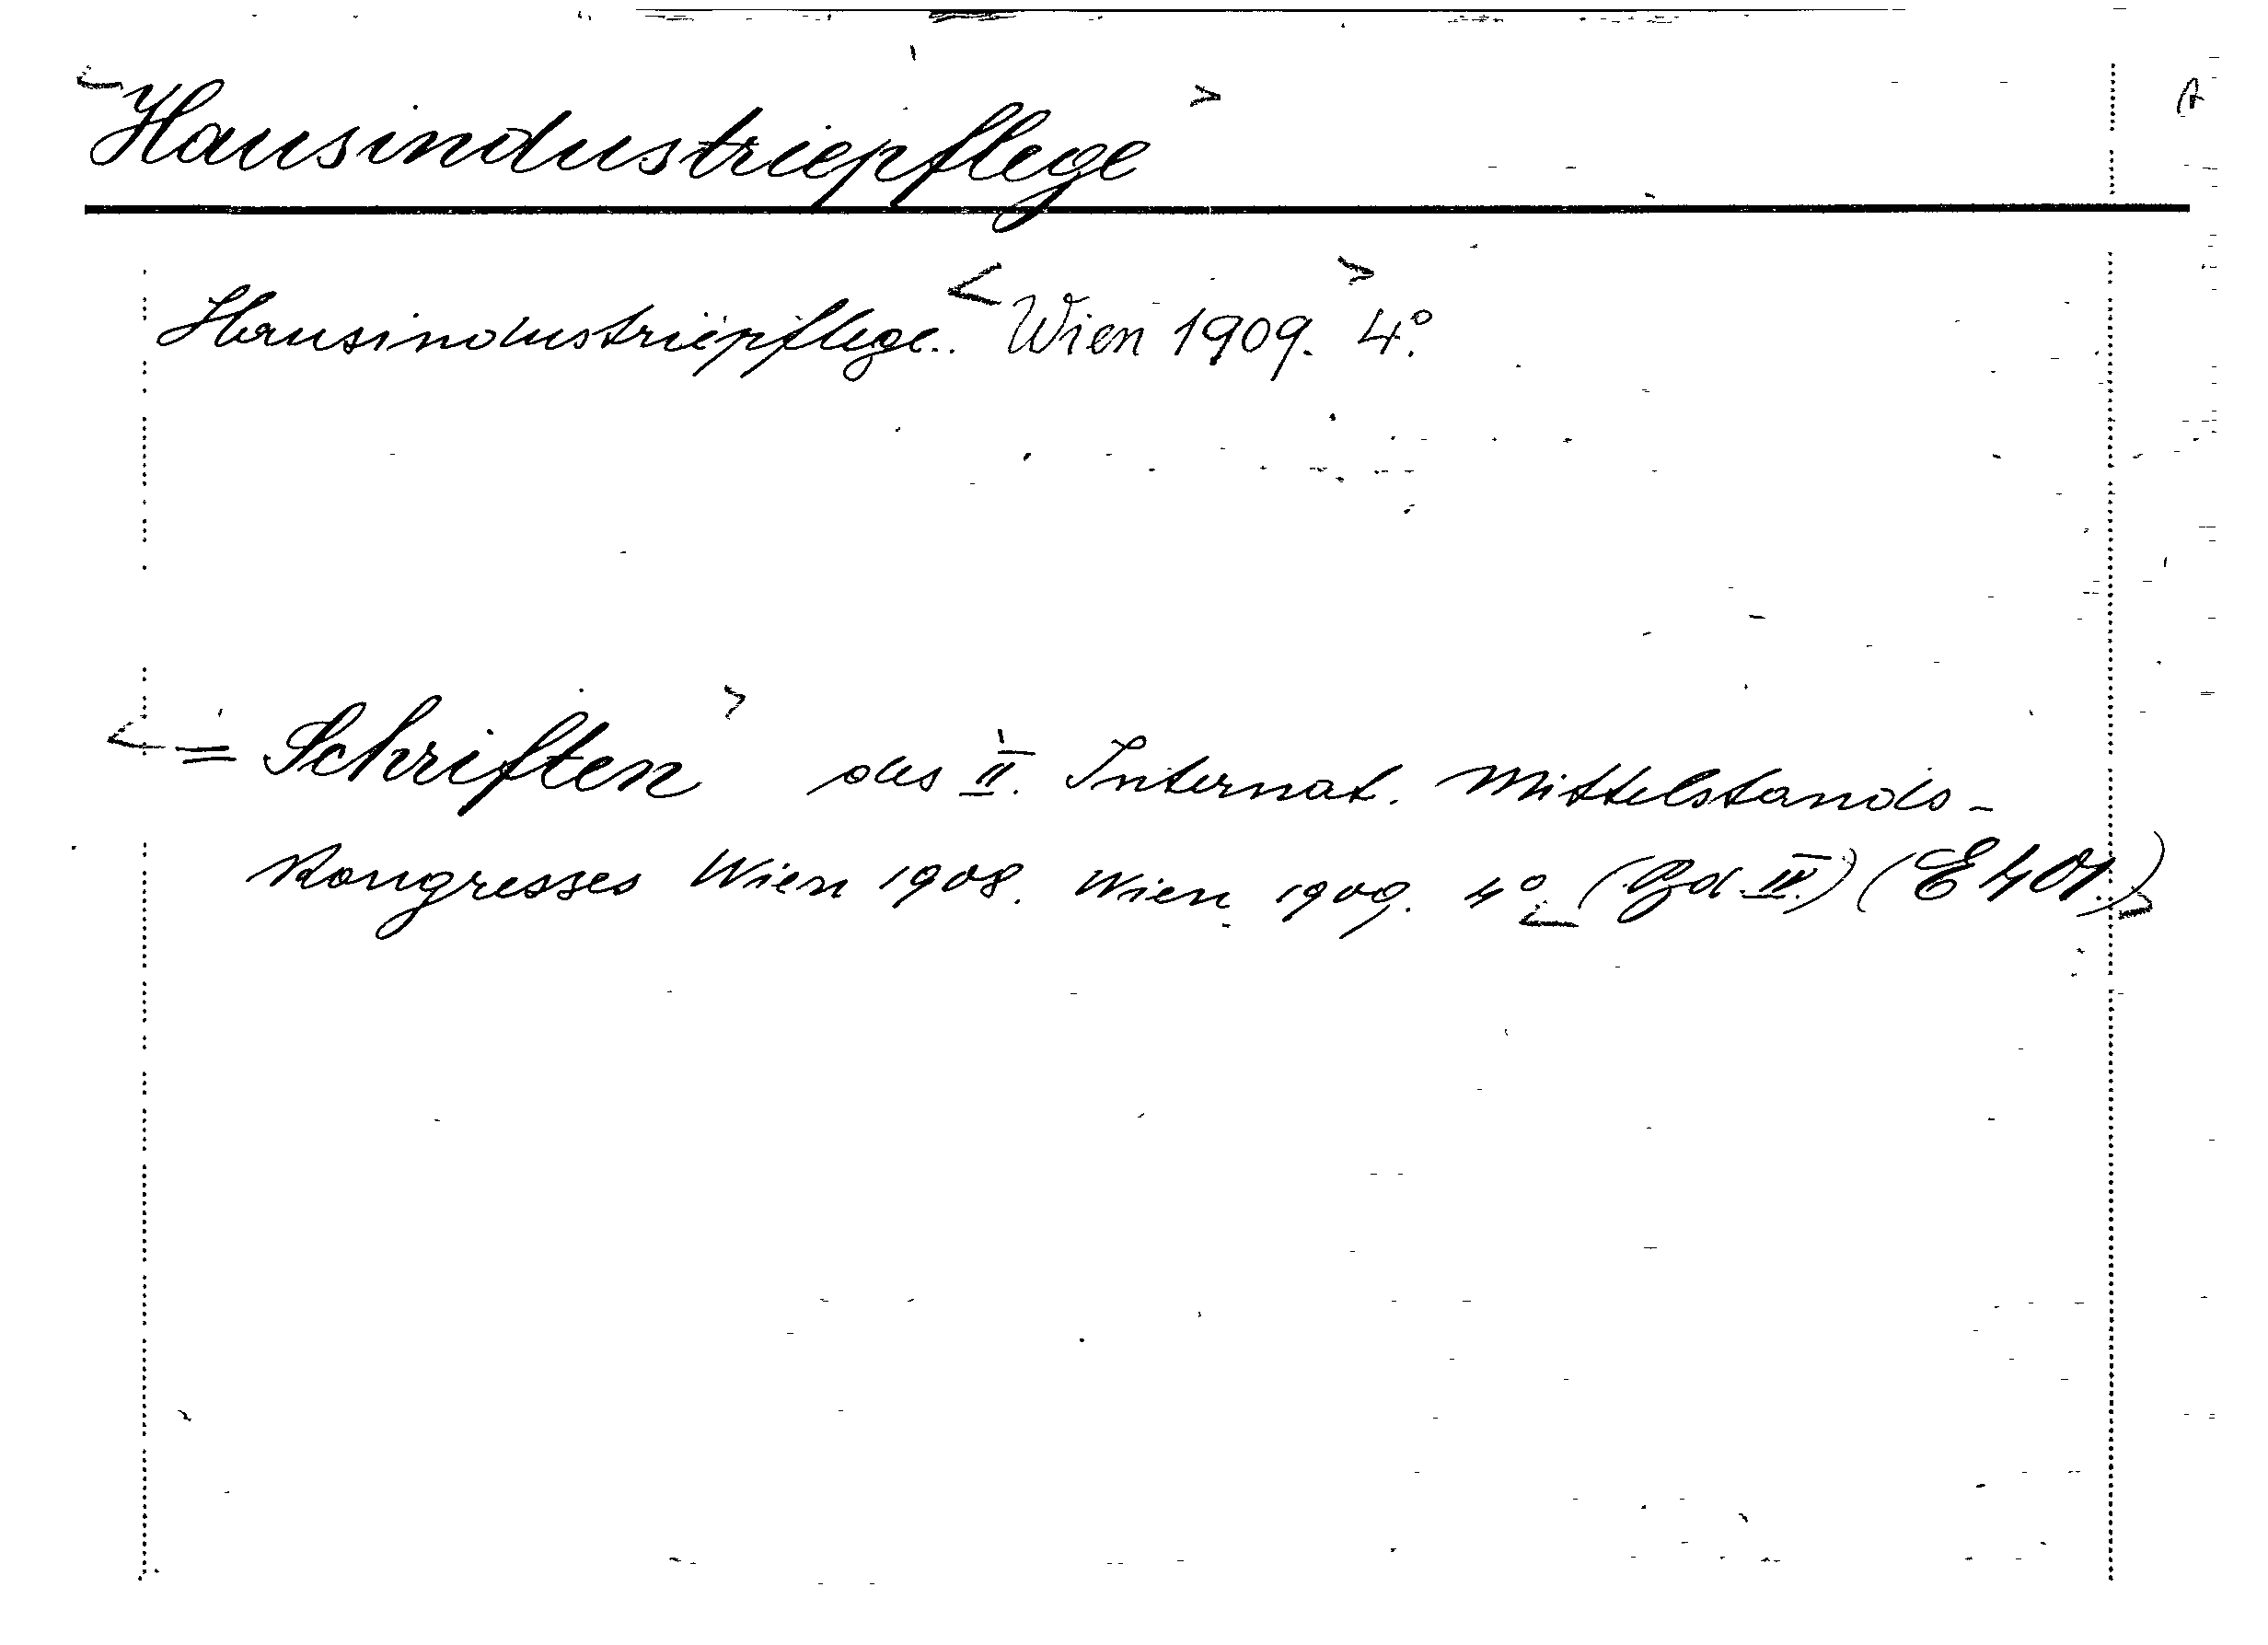 <Hausindustriepflege>
Hausindustriepflege. <Wien 1909.> 4°.
<= Schriften> des II. Internat. Mittelstands-
Kongresses Wien 1908. Wien 1909. 4° <(Bd. IV.) (E 401.)>